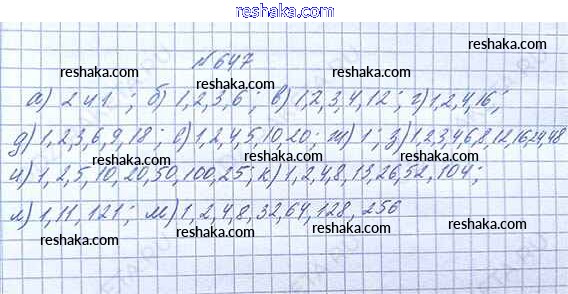 reshaka.com
№647
reshaka.com reshaka.com reshaka.com
а) 2 и 1 ; б) 1,2,3,6 ; в) 1,2,3,4,12 ; г) 1,2,4,16 ;
reshaka.com reshaka.com reshaka.com
д) 1,2,3,6,9,18 ; е) 1,2,4,5,10,20; ж) 1 ; з) 1,2,3,4,6,8,12,16,24,48
reshaka.com reshaka.com reshaka.com
и) 1,2,5,10,20,50,100,25; к) 1,2,4,8,13,26,52,104;
reshaka.com reshaka.com reshaka.com
л) 1,11,121; м) 1,2,4,8,32,64,128,256
reshaka.com reshaka.com reshaka.com
reshaka.com